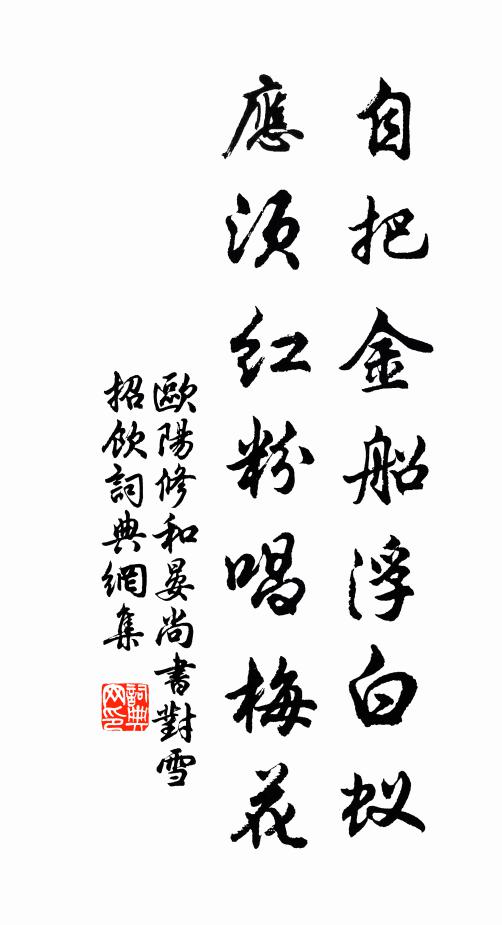 自把金船浮白蚁
應须紅粉唱梅花
歐陽修和晏尚書對雪
招飲詞典網集
詞典
网印